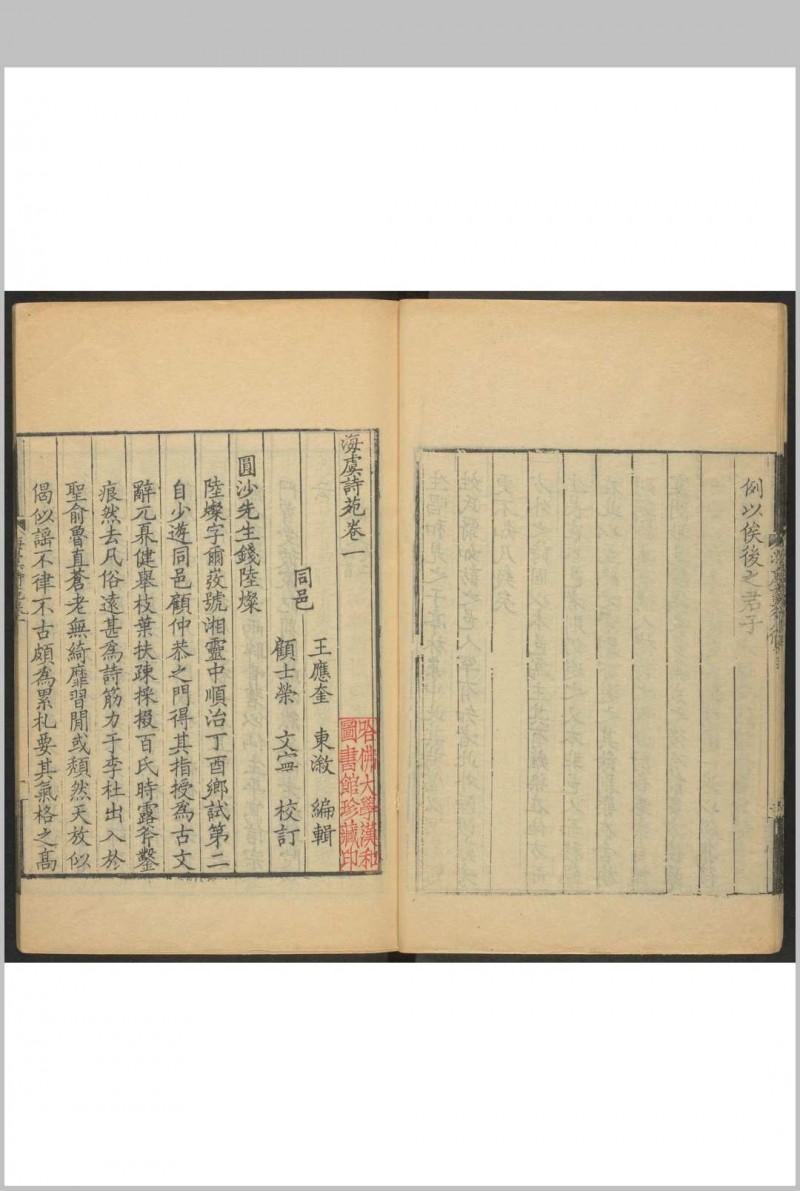 例以俟後之君子
海虞詩苑卷一
同邑
王應奎 東漵 編輯
顧士榮 文寧 校訂
圓沙先生錢陸燦
陸燦字爾弢號湘靈中順治丁酉鄉試第二
自少遊同邑顧仲恭之門得其指授為古文
辭兀奡健舉枝葉扶疎採掇百氏時露斧鑿
痕然去凡俗遠甚為詩筋力于李杜出入於
聖俞魯直蒼老無綺靡習閒或頹然天放似
偈似謡不律不古頗為累札要其氣格之高
哈佛大學漢和
圖書館珍藏印